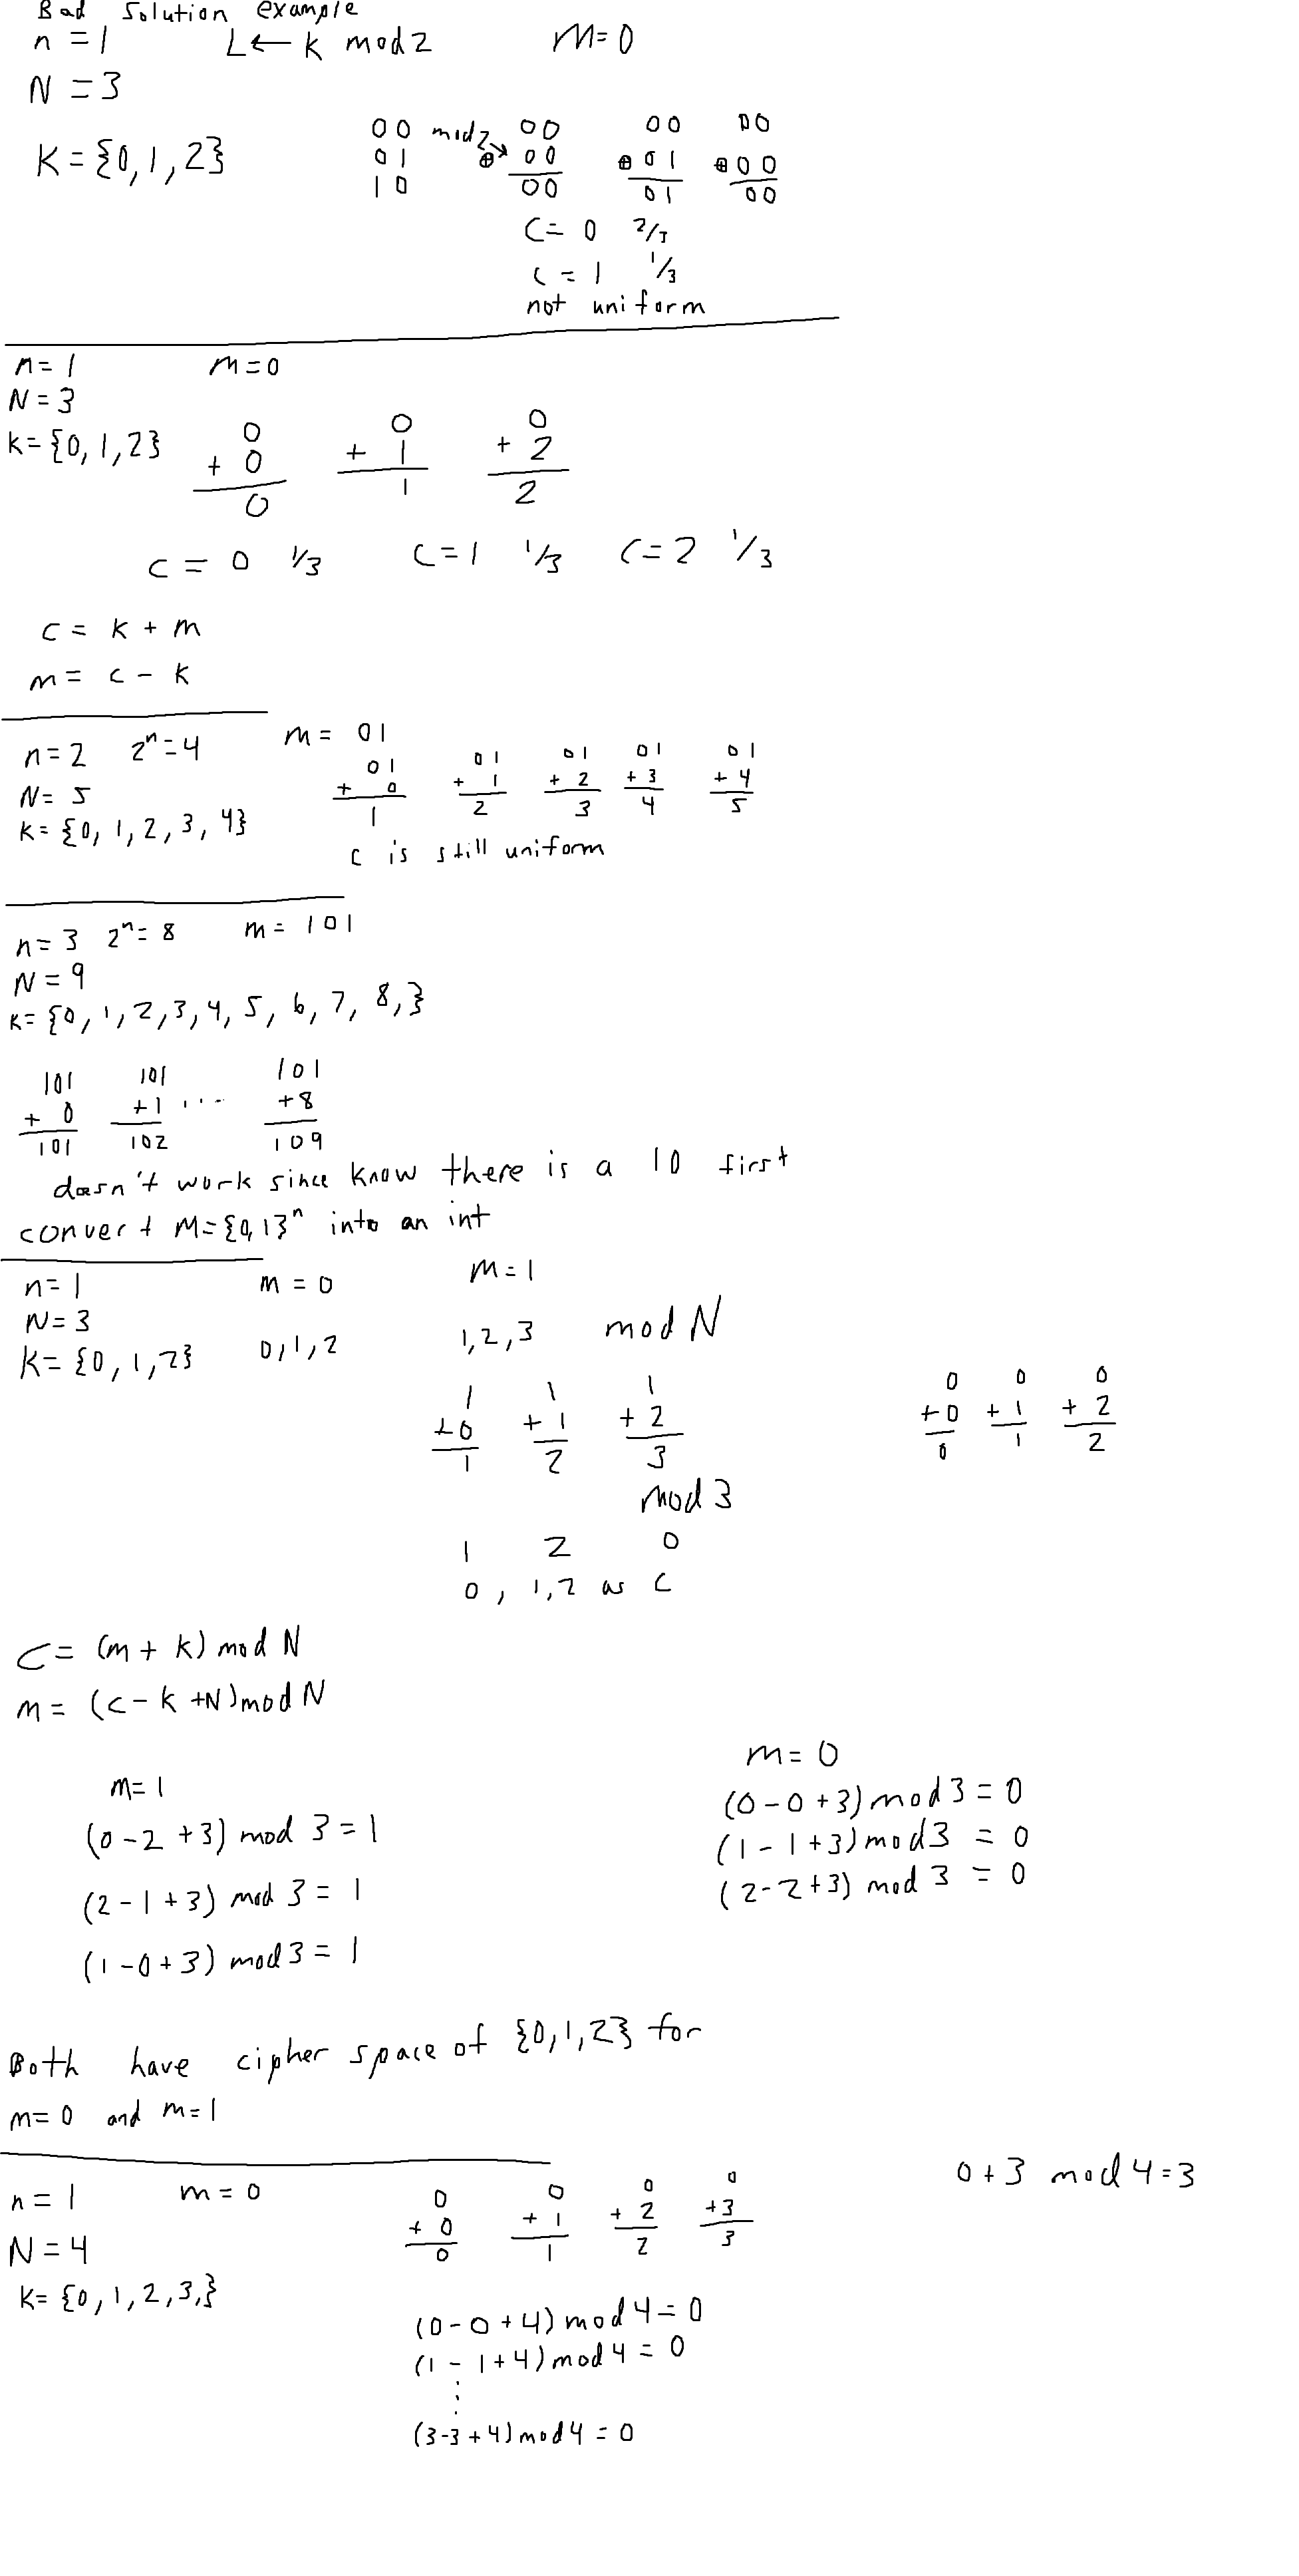 Bad solution example
n = 1 L ← k mod 2 m = 0
N = 3
K = {0, 1, 2}
00 mod 2 00 00 00
01 ⊕→ 00 ⊕ 01 ⊕ 00
10 00 01 00
C = 0 2/3
C = 1 1/3
not uniform
n = 1 m = 0
N = 3
K = {0, 1, 2}
0 0 0
+ 0 + 1 + 2
0 1 2
C = 0 1/3 C = 1 1/3 C = 2 1/3
C = K + m
m = C - K
n = 2 2^n = 4 m = 01
N = 5
K = {0, 1, 2, 3, 4}
01 01 01 01 01
+ 0 + 1 + 2 + 3 + 4
1 2 3 4 5
C is still uniform
n = 3 2^n = 8 m = 101
N = 9
K = {0, 1, 2, 3, 4, 5, 6, 7, 8,}
101 101 101
+ 0 +1 .... +8
101 102 109
doesn't work since know there is a 10 first
convert M={0,1}^n into an int
n = 1 m = 0 m = 1
N = 3
K = {0, 1, 2} 0, 1, 2 1, 2, 3 mod N
1 1 1 0 0 0
+0 + 1 + 2 +0 + 1 + 2
1 2 3 0 1 2
mod 3
1 2 0
0, 1, 2 as C
C = (m + k) mod N
m = (c - k + N) mod N
m = 1
(0 - 2 + 3) mod 3 = 1
(2 - 1 + 3) mod 3 = 1
(1 - 0 + 3) mod 3 = 1
m = 0
(0 - 0 + 3) mod 3 = 0
(1 - 1 + 3) mod 3 = 0
(2 - 2 + 3) mod 3 = 0
Both have cipher space of {0, 1, 2} for
m = 0 and m = 1
n = 1 m = 0
N = 4
K = {0, 1, 2, 3,}
0 0 0 0
+ 0 + 1 + 2 +3
0 1 2 3
0 + 3 mod 4 = 3
(0 - 0 + 4) mod 4 = 0
(1 - 1 + 4) mod 4 = 0
(3 - 3 + 4) mod 4 = 0